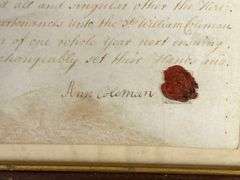 d all and singular other the Here
purtenances unto the sd. William Coleman
m of one whole Year next ensuing
changeably set their Hands and
Ann Coleman